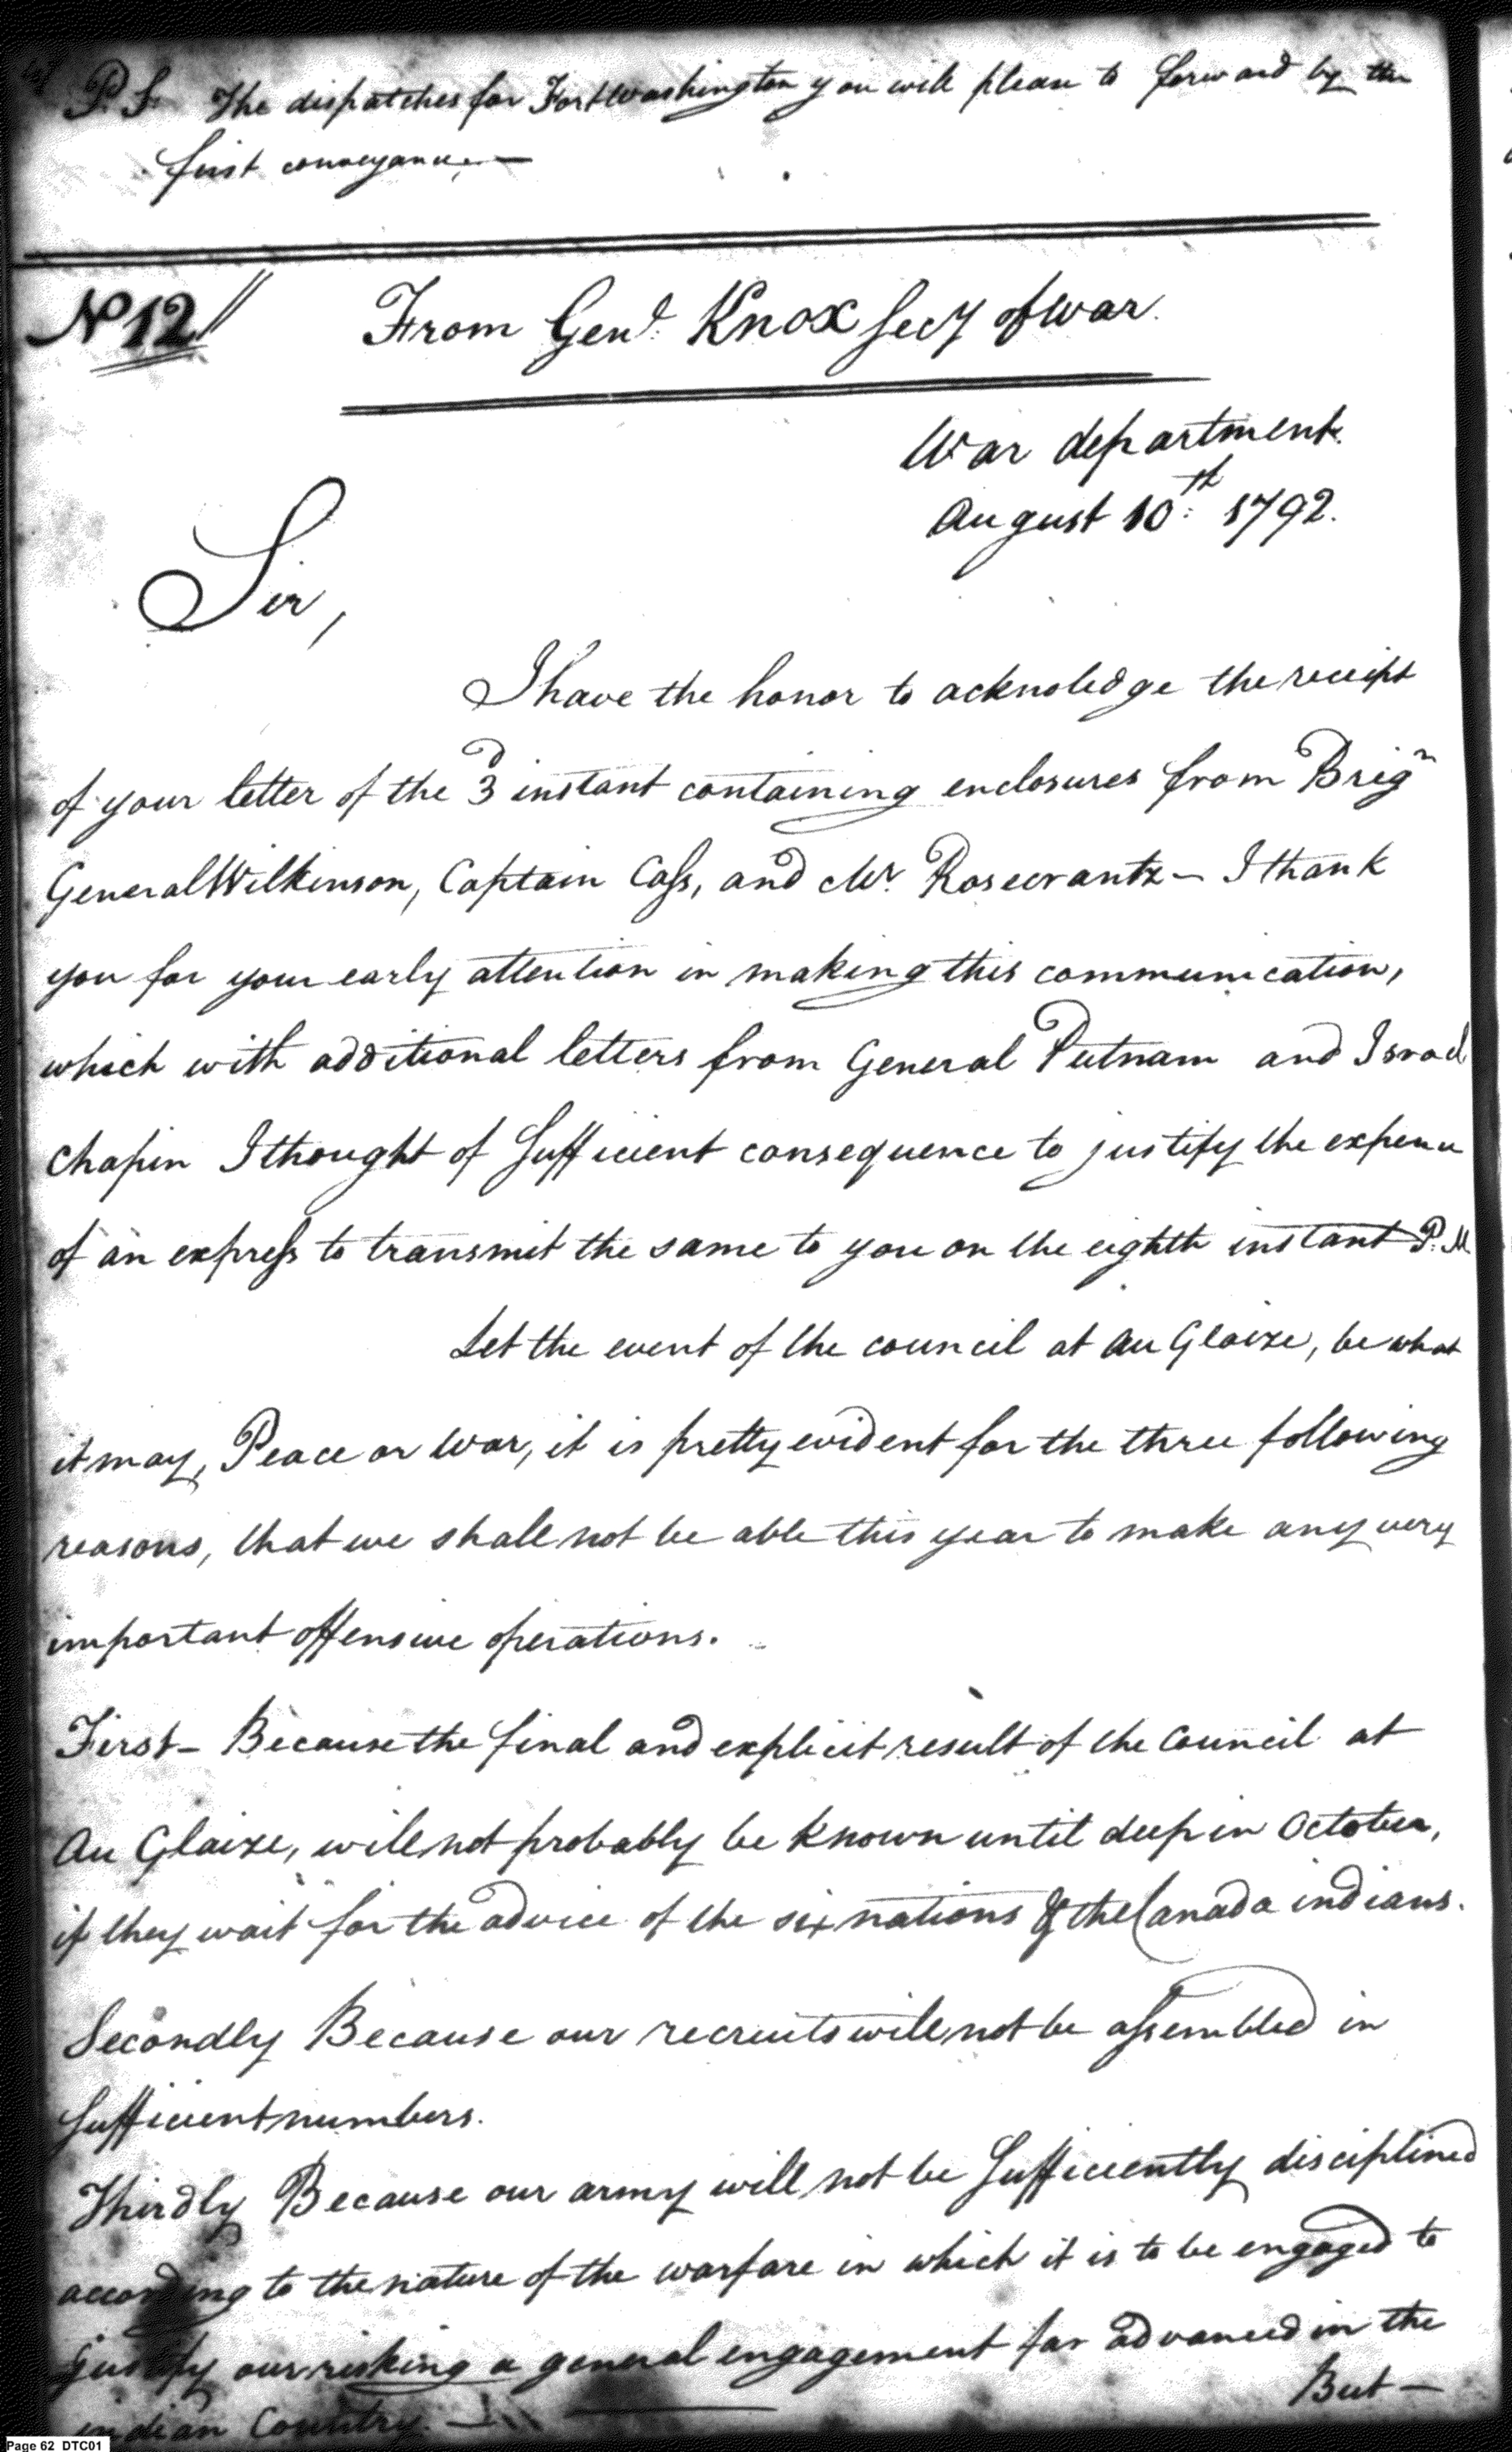 P.S. The dispatches for Fort Washington you will please to forward by the
first conveyance.—
No 12 // From Genl. Knox Secy of War.
War department.
August 10th: 1792.
Sir,
I have the honor to acknoledge the receipt
of your letter of the 3d instant containing enclosures from Brigr
General Wilkinson, Captain Cass, and Mr. Rosecrantz — I thank
you for your early attention in making this communication,
which with additional letters from General Putnam and Israel
Chapin I thought of Sufficient consequence to justify the expence
of an express to transmit the same to you on the eighth instant P.M.
Let the event of the council at Au Glaize, be what
it may, Peace or War, it is pretty evident for the three following
reasons, that we shall not be able this year to make any very
important offensive operations.
First — Because the final and explicit result of the Council at
Au Glaize, will not probably be known until deep in October,
if they wait for the advice of the six nations & the Canada indians.
Secondly Because our recruits will not be assembled in
Sufficient numbers.
Thirdly Because our army will not be Sufficiently disciplined
according to the nature of the warfare in which it is to be engaged to
justify our risking a general engagement far advanced in the
indian Country. —
But —
Page 62 DTC01